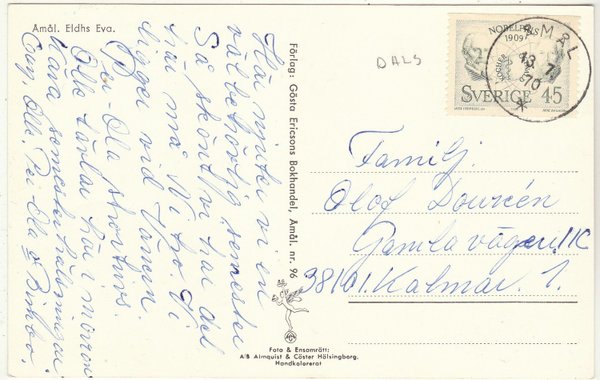 Åmål. Eldhs Eva.
Här njuter vi en
välbehövlig semester
Så skönt vi har det
här må Ni tro. Vi
ligger vid Vänern
Per-Ola
Olle tävlar här i morron
Kära semesterhälsningar
Eva, Olle, Per Ola & Bimbo.
Förlag: Gösta Ericsons Bokhandel, Åmål. nr. 96
Foto & Ensamrätt:
A/B Almquist & Cöster Hälsingborg.
Handkolorerat
DALS
NOBELPRIS
1909
KOCHER
SVERIGE 45
ÅMÅL
13 7
70
Familj.
Olof
Gamla vägen 11C
38101. Kalmar 1.